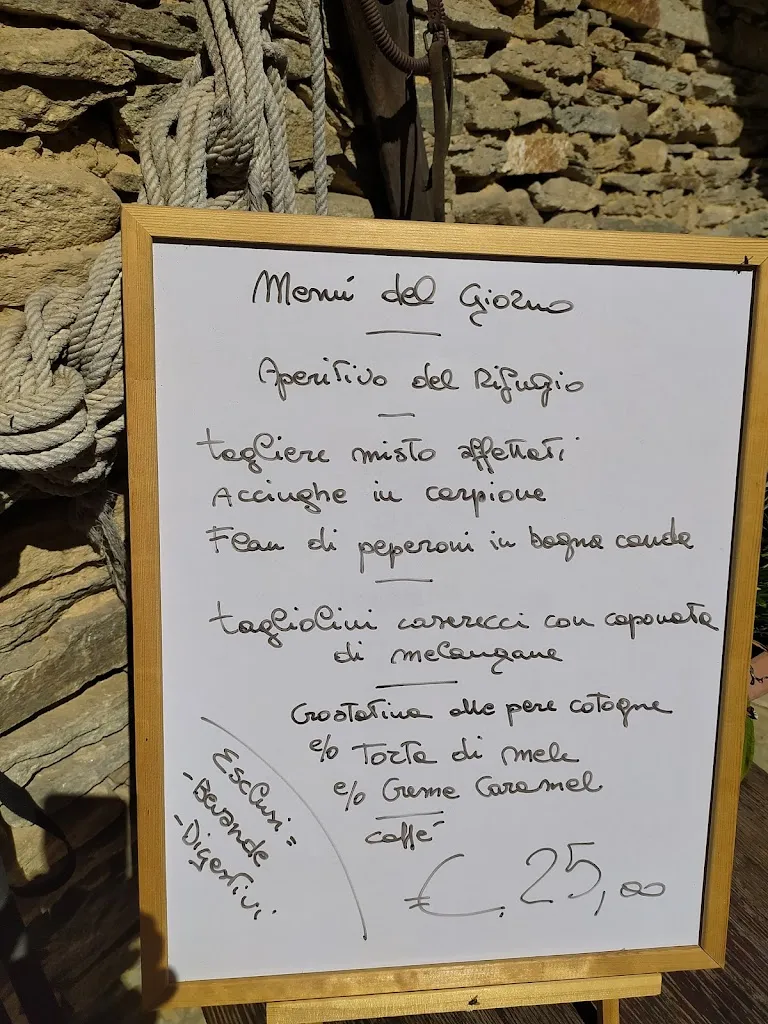 Menù del Giorno
Aperitivo del Rifugio
tagliere misto affettati
Acciughe in carpione
Flan di peperoni in bagna cauda
tagliolini caserecci con caponata
di melangane
Crostatina alle pere cotogne
e/o Torta di mele
e/o Creme Caramel
caffè
Esclusi =
- Bevande
- Digestivi
€. 25,00